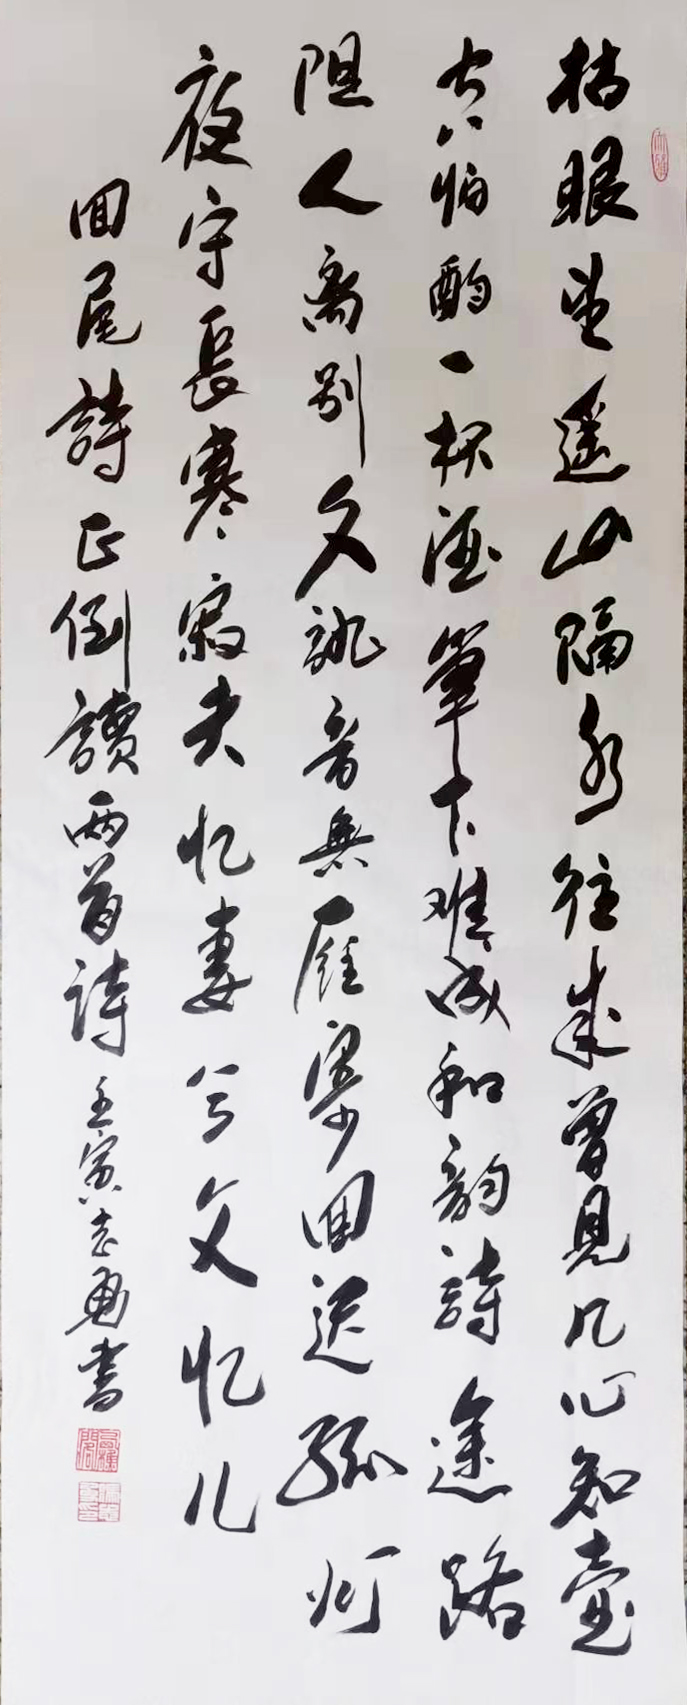 枯眼望遥山隔水往来曾见几心知壶
空怕酌一杯酒筆下难成和韵詩途路
阻人离别久訛音無雁寥回迟孤灯
夜守長寒寂夫忆妻兮父忆儿
回尾詩正倒讀两首诗壬寅志勇書